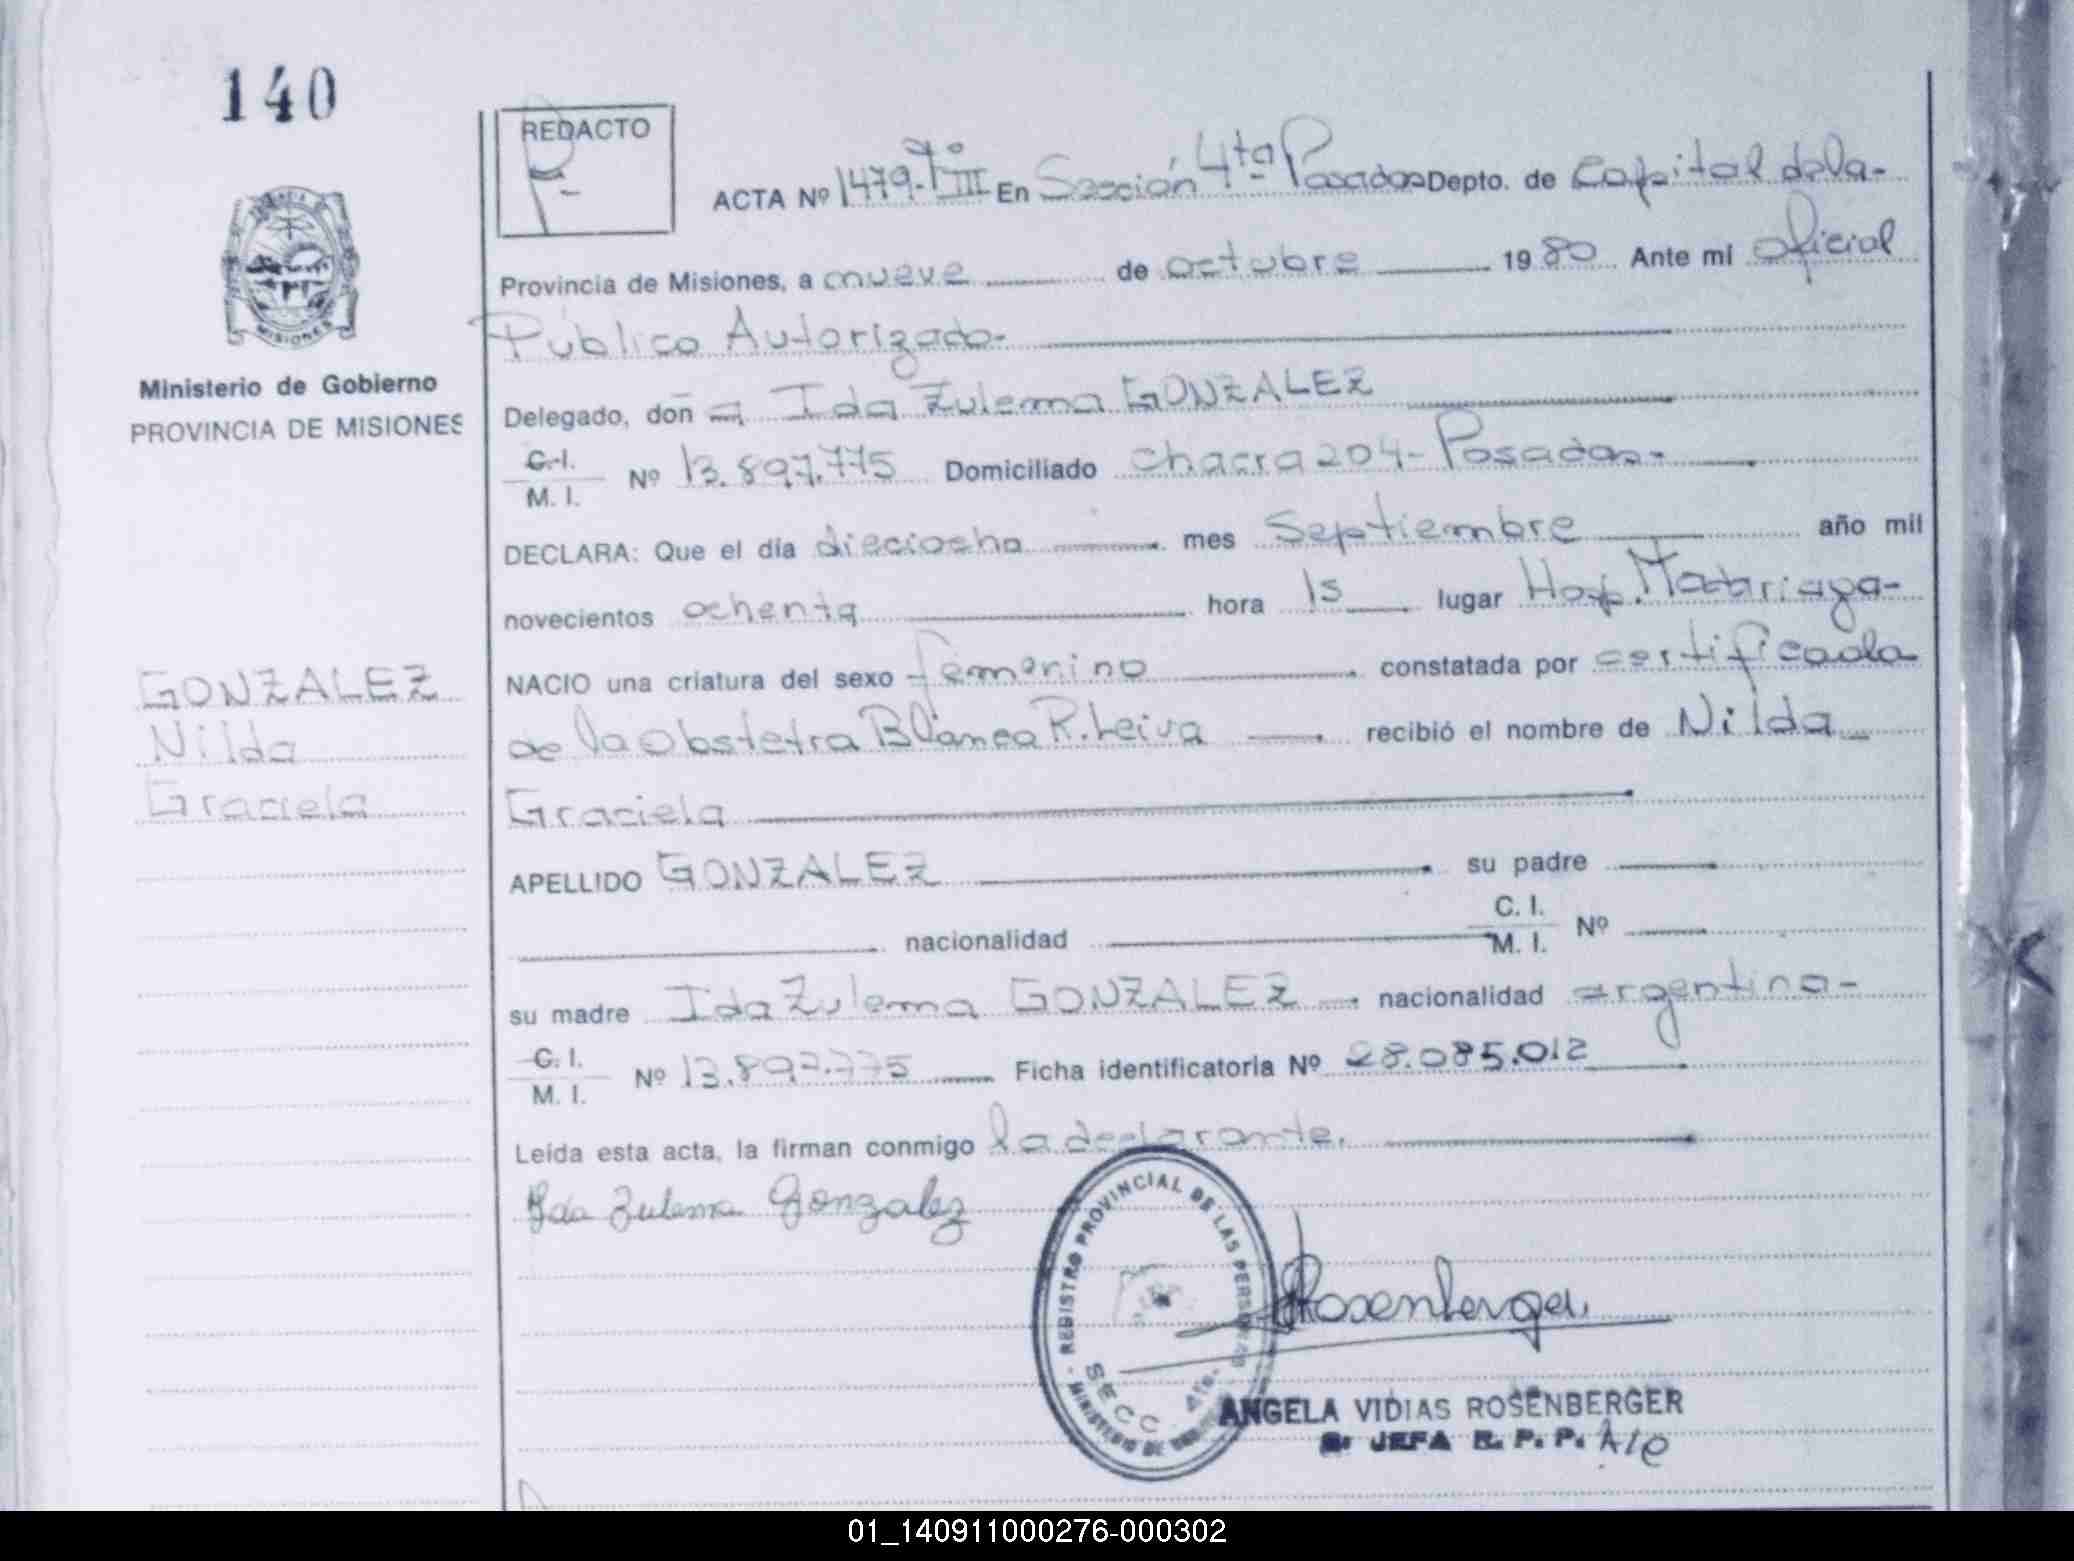 140
REDACTO
ACTA Nº 1479-Tº III En Sección 4ta Posadas Depto. de Capital de la-
Provincia de Misiones, a nueve de octubre 1980 Ante mi Oficial
Público Autorizado-
Delegado, doña Ida Zulema GONZALEZ
C.I.
M. I. Nº 13.897.775 Domiciliado chacra 204-Posadas-
DECLARA: Que el día dieciocho mes Septiembre año mil
novecientos ochenta hora 15 lugar Hosp. Madariaga-
NACIO una criatura del sexo femenino constatada por certificado
de la Obstetra Blanca R. Leiva recibió el nombre de Nilda
Graciela
APELLIDO GONZALEZ su padre
nacionalidad C. I.
M. I. Nº
su madre Ida Zulema GONZALEZ nacionalidad argentina-
C. I.
M. I. Nº 13.897.775 Ficha identificatoria Nº 28.085.012
Leída esta acta, la firman conmigo la declarante.
Ida Zulema Gonzalez
Rosenberger
ANGELA VIDIAS ROSENBERGER
JEFA R. P. P.
REGISTRO PROVINCIAL DE LAS PERSONAS
SECC 4ta.
MINISTERIO DE
MISIONES
Ministerio de Gobierno
PROVINCIA DE MISIONES
GONZALEZ
Nilda
Graciela
01_140911000276-000302